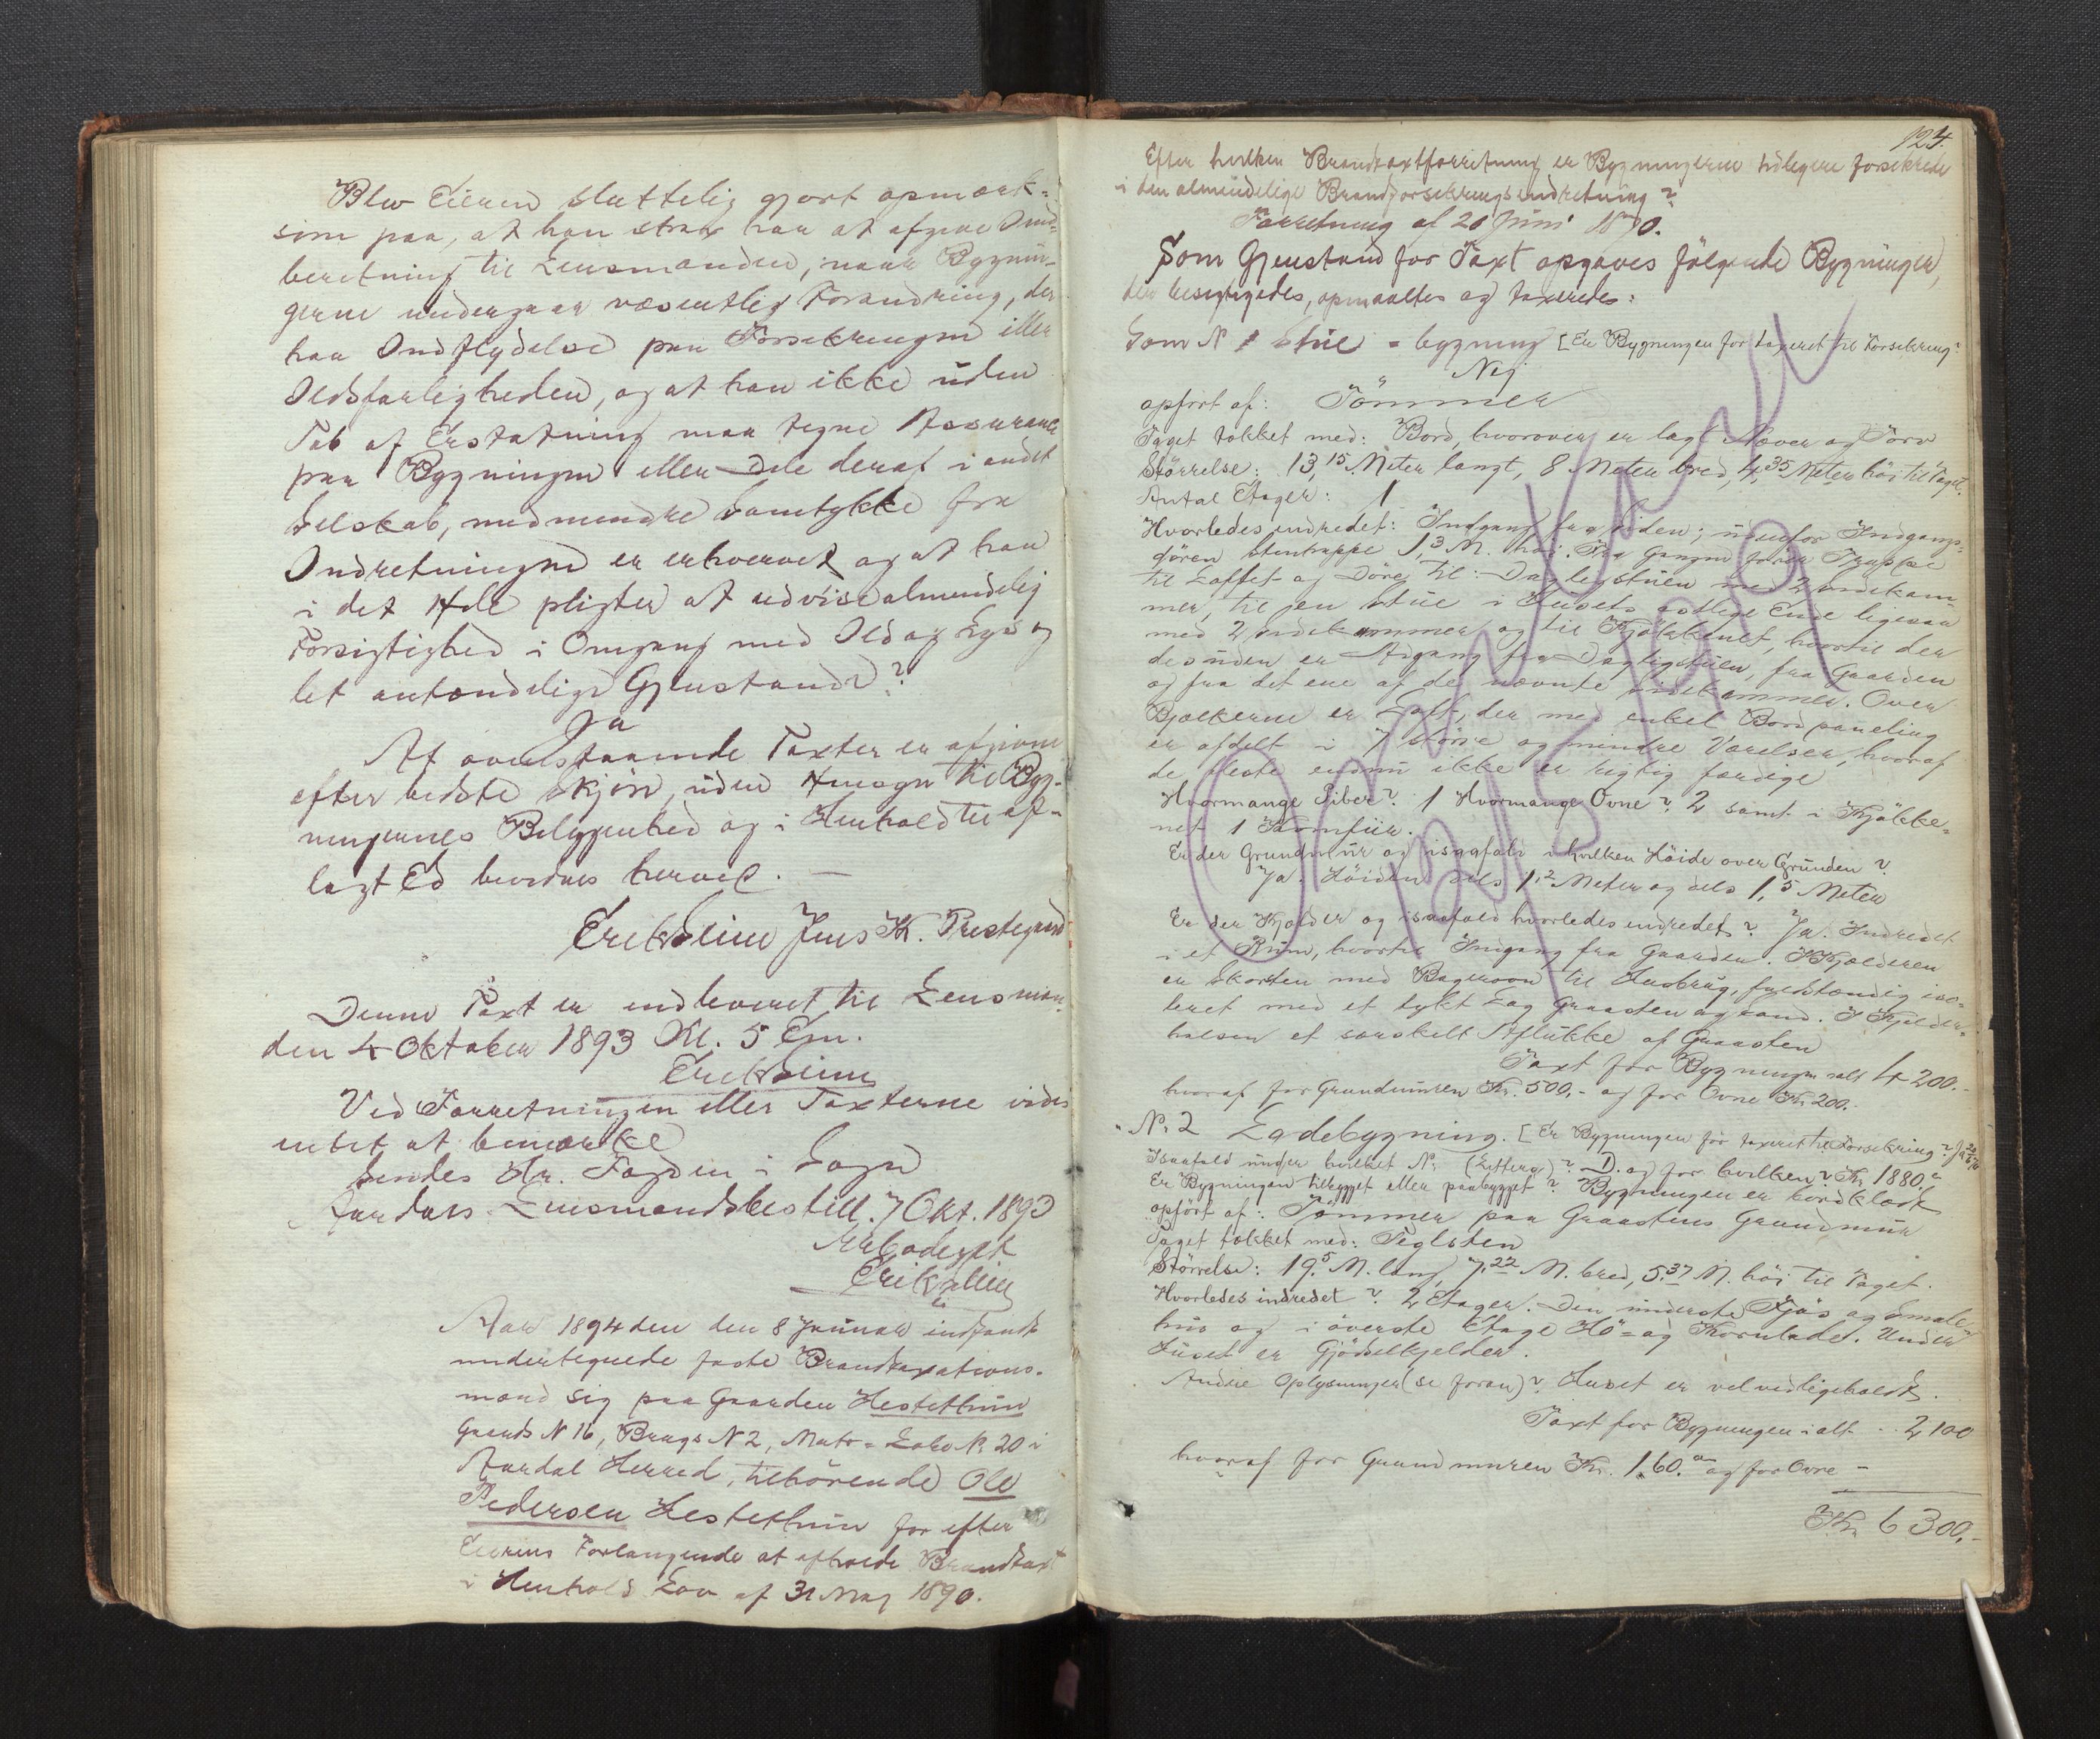 Blev Eieren sluttelig gjort opmærk-
som paa, at han strax har at afgive Ind-
beretning til Lensmanden, naar Bygnin-
gerne undergaar væsentlig Forandring, der
har Indflydelse paa Forsikringen eller
Ildsfarligheden, og at han ikke uden
Tab af Erstatning maa tegne Assurance
paa Bygningen eller Dele deraf i andet
Selskab, medmindre Samtykke fra
Indretningen er erhvervet og at han
i det Hele pligter at udvise almindelig
Forsigtighed i Omgang med Ild og Lys og
let antændelige Gjenstande?
Ja
At ovenstaaende Taxter er afgivne
efter bedste Skjøn, uden Hensyn til Byg-
ningernes Beliggenhed og i Henhold til af-
lagt Ed bevidnes herved. —
Erik Leim Jens K. Prestegaard
Denne Taxt er indleveret til Lensman-
den 4 Oktober 1893 Kl. 5 Em.
Erik Leim
Ved Forretningen eller Taxterne vides
intet at bemærke
Sendes Hr. Fogden i Sogn
Aardals Lensmandsbestill. 7 Okt. 1893
Erik Leim
Aar 1894 den den 8 Januar indfandt
undertegnede faste Brandtaxations-
mænd sig paa Gaarden Hestethun
Gaards N 16, Brugs N 2, Matr-Løbe N. 20 i
Aardal Herred, tilhörende Ole
Pedersen Hestethun for efter
Eierens Forlangende at afholde Brandtaxt
i Henhold Lov af 31 Maj 1890.
124.
Efter hvilken Brandtaxtforretning er Bygningerne tidligere forsikrede
i den almindelige Brandforsikringsindretning?
Forretning af 20 Juni 1870.
Som Gjenstand for Taxt opgaves fölgende Bygninger,
der besigtigedes, opmaaltes og taxeredes:
Som N 1 Stue-bygning [Er Bygningen för taxeret til Forsikring?
Nej
opfört af: Tömmer
Taget tækket med: Bord, hvorover er lagt Næver og Törv
Störrelse: 13,15 Meter langt, 8 Meter bred, 4,35 Meter höi til Taget.
Antal Etager: 1
Hvorledes indredet: Indgang fra Siden; udenfor Indgangs-
dören Stentrappe 1,3 M. höi. Fra Gangen förer Trappe
til Loftet og Döre til: Dagligstuen med 2 Sidekam-
mer, til en Stue i Husets östlige Ende ligesaa
med 2 Sidekammer og til Kjökkenet, hvortil der
desuden er Adgang fra Dagligstuen, fra Gaarden
og fra det ene af de nævnte Sidekammer. Over
Bjælkerne er Loft, der med enkel Bordpaneling
er afdelt i 7 större og mindre Værelser, hvoraf
de fleste endnu ikke er rigtig færdige
Hvormange Piber? 1 Hvormange Ovne? 2 samt i Kjökke-
net 1 Komfür.
Er der Grundmur og isaafald i hvilken Höide over Grunden?
Ja. Höiden dels 1,2 Meter og dels 1,5 Meter
Er der Kjælder og isaafald hvorledes indredet? Ja. Indredet
i et Rum, hvortil Indgang fra Gaarden. I Kjælderen
er Skorsten med Bagerovn til Husbrug, fuldstændig iso-
leret med et tykt Lag Graasten og Sand. I Kjælder-
halsen et særskilt Aflukke af Graasten
Taxt for Bygningen ialt 4200.-
hvoraf for Grundmuren Kr. 500,- og for Ovne Kr 200.-
N. 2 Ladebygning. [Er Bygningen för taxeret til Forsikring? Ja
Isaafald under hvilket N: (Littera)? D. og for hvilken? Kr 1880,-
Er Bygningen tilbygget eller paabygget? Bygningen er bordklædt
opfört af: Tömmer paa Graastens Grundmur
Taget tækket med: Teglsten
Störrelse: 19,5 M. lang, 7,22 M. bred, 5,37 M. höi til Taget.
Hvorledes indredet? 2 Etager. Den underste Fjös og Smale-
hus og i överste Etage Hö- og Kornlade. Under
Huset er Gjödselkjelder.
Andre Oplysninger (se foran)? Huset er vel vedligeholdt.
Taxt for Bygningen ialt .. 2100
hvoraf for Grundmuren Kr. 160.- og for Ovne -
Kr. 6300,-